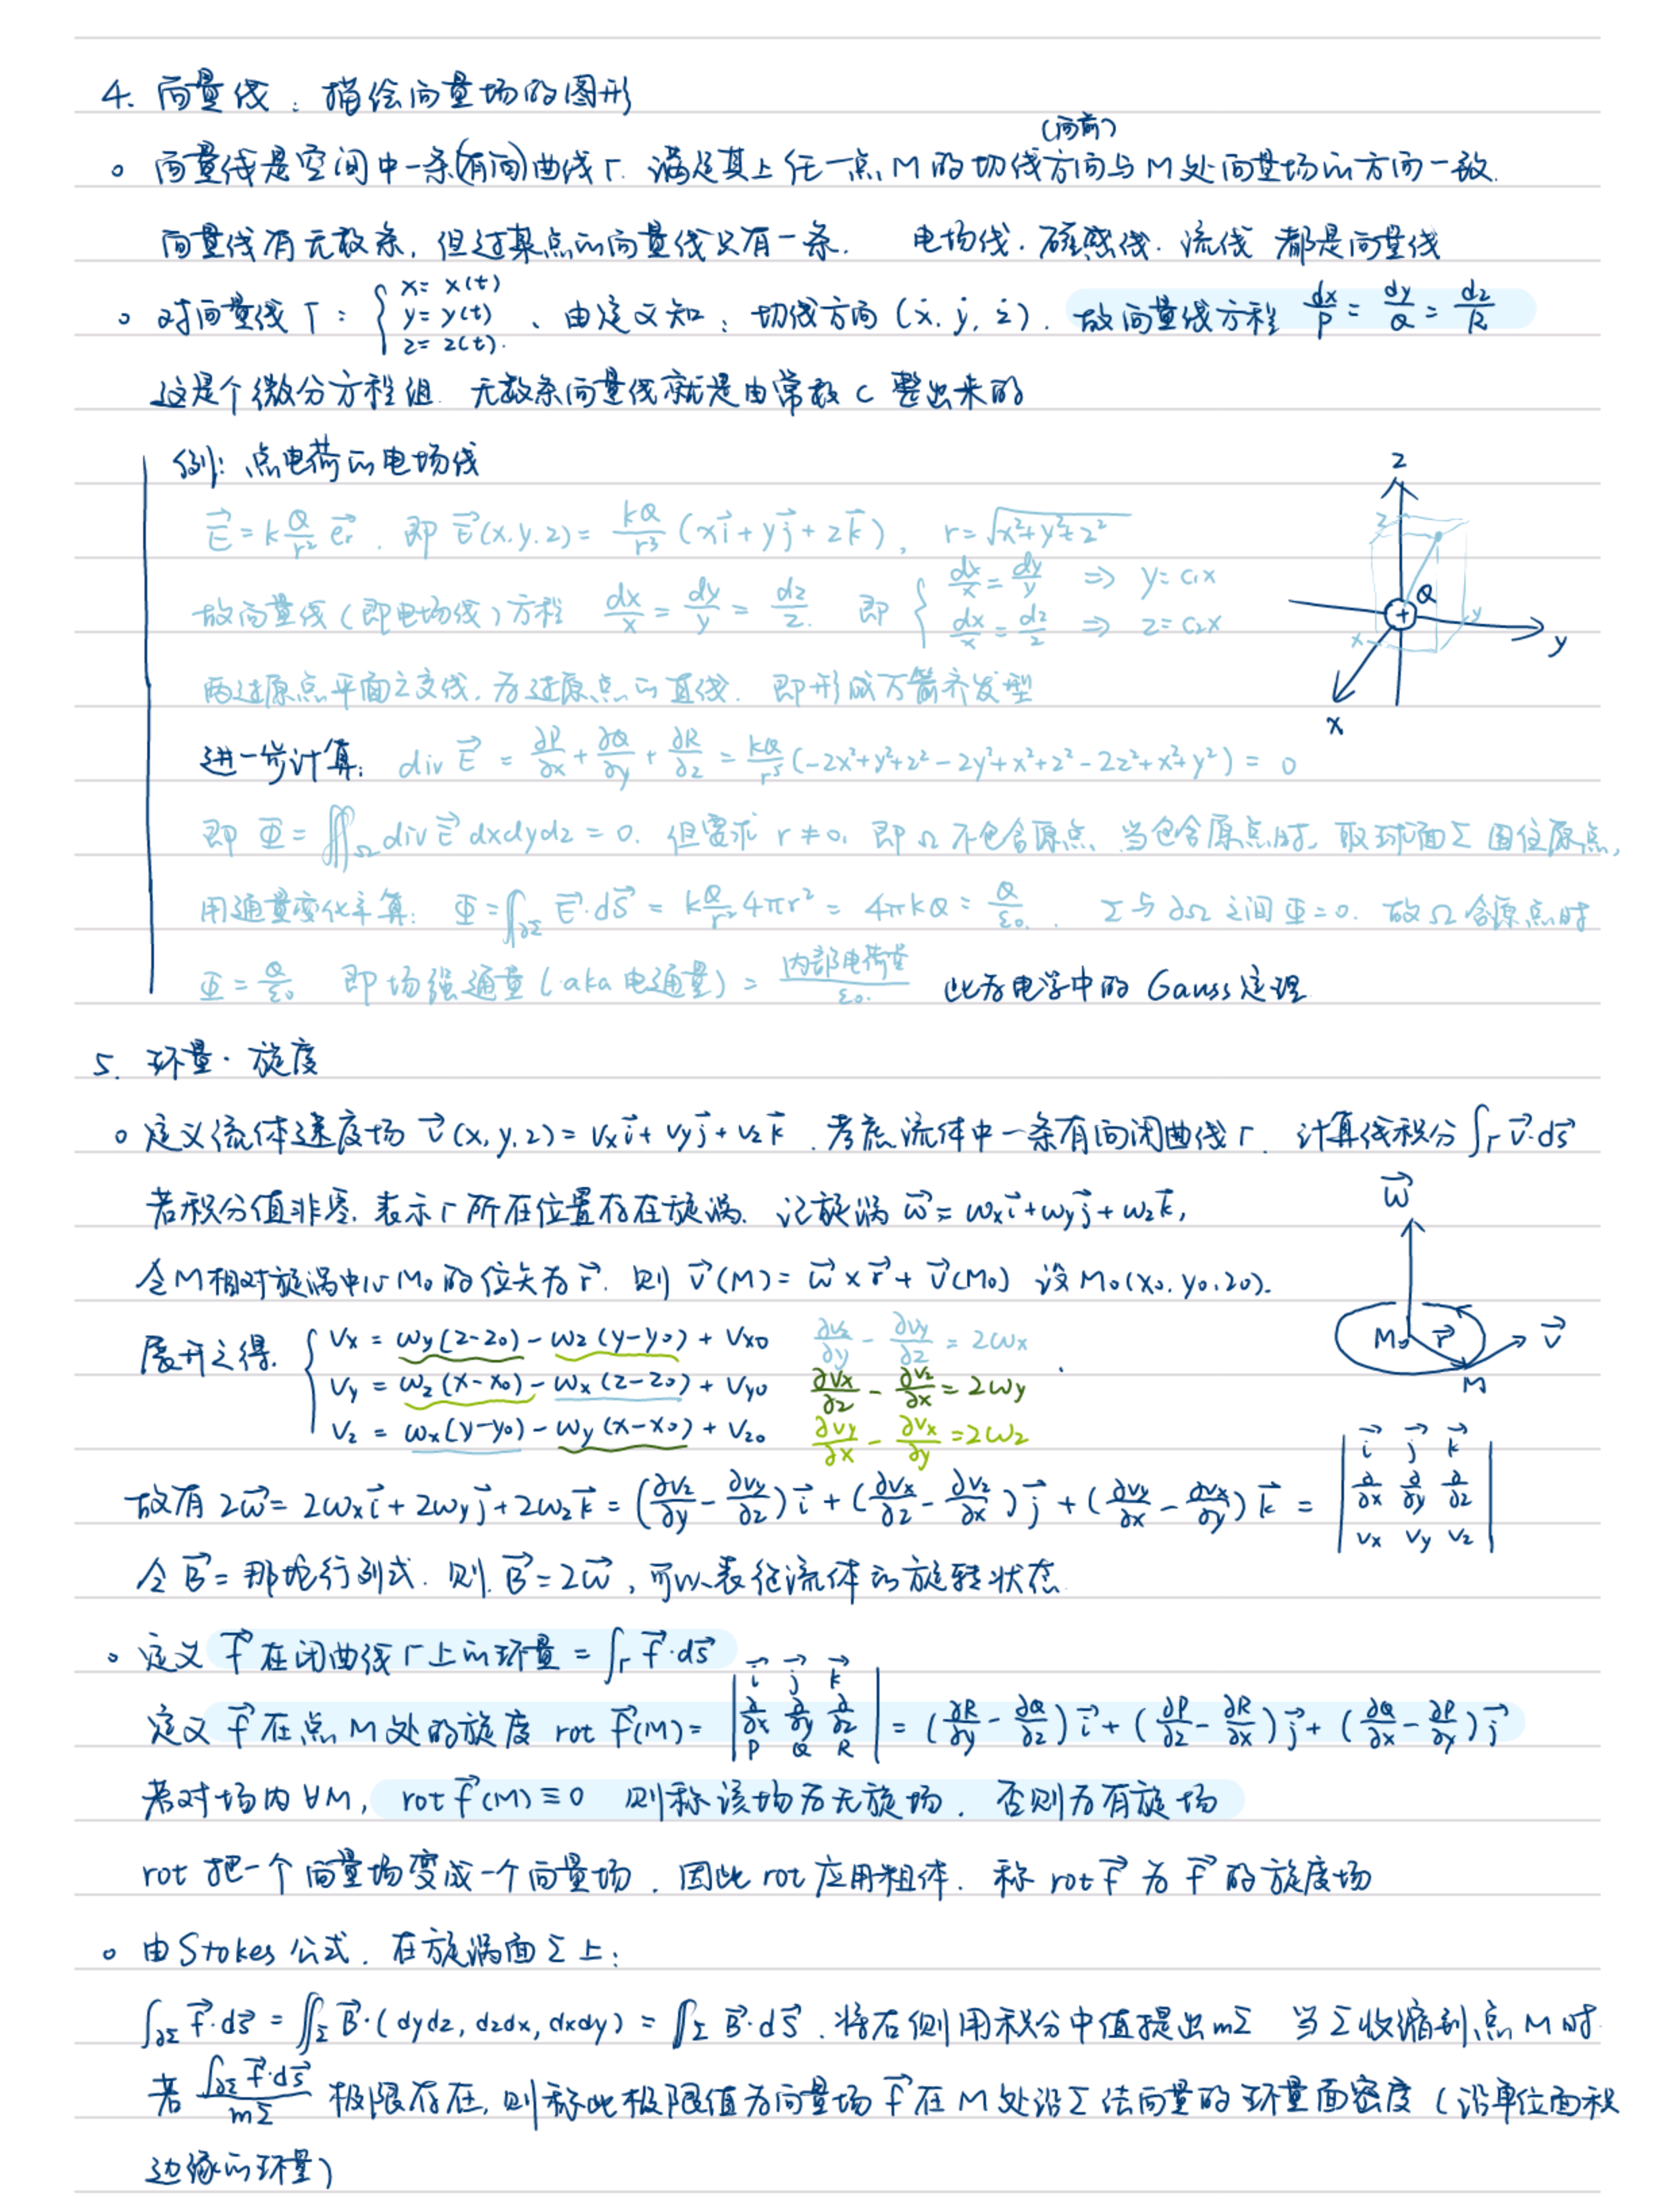 4. 向量线：描绘向量场的图形
(向前)
。向量线是空间中一条(有向)曲线Γ. 满足其上任一点M的切线方向与M处向量场的方向一致.
向量线有无数条, 但过某点的向量线只有一条. 电场线. 磁感线. 流线 都是向量线
。对向量线Γ: { x=x(t) y=y(t) z=z(t). 、由定义知: 切线方向 (ẋ, ẏ, ż). 故向量线方程 dx/P = dy/Q = dz/R
这是个微分方程组. 无数条向量线就是由常数 C 整出来的
例: 点电荷的电场线
E⃗ = k Q/r² e⃗r. 即 E⃗(x.y.z) = kQ/r³ (xi⃗+yj⃗+zk⃗), r=√(x²+y²+z²)
故向量线(即电场线)方程 dx/x = dy/y = dz/z. 即 { dx/x = dy/y ⇒ y=c₁x
dx/x = dz/z ⇒ z=c₂x
z
z
Q
+
x
y
y
x
两过原点平面之交线. 为过原点的直线. 即形成万箭齐发型
进一步计算: div E⃗ = ∂P/∂x + ∂Q/∂y + ∂R/∂z = kQ/r⁵ (-2x²+y²+z²-2y²+x²+z²-2z²+x²+y²) = 0
即 Φ = ∭Ω div E⃗ dxdydz = 0. 但要求 r≠0, 即Ω不包含原点. 当包含原点时, 取球面Σ围住原点,
用通量变化率算: Φ = ∫∂Σ E⃗·dS⃗ = k Q/r² 4πr² = 4πkQ = Q/ε₀. Σ与∂Ω之间Φ=0. 故Ω含原点时
Φ = Q/ε₀ 即场强通量 (aka 电通量) = 内部电荷量/ε₀. 此为电学中的 Gauss定理
5. 环量·旋度
。定义流体速度场 v⃗(x,y,z) = vx i⃗ + vy j⃗ + vz k⃗. 考虑流体中一条有向闭曲线Γ. 计算线积分 ∫Γ v⃗·ds⃗
若积分值非零, 表示Γ所在位置存在旋涡. 记旋涡 ω⃗ = ωx i⃗ + ωy j⃗ + ωz k⃗,
令M相对旋涡中心M₀的位矢为 r⃗. 则 v⃗(M) = ω⃗ × r⃗ + v⃗(M₀) 设 M₀(x₀, y₀, z₀).
ω⃗
M₀ r⃗ v⃗
M
展开之得. { vx = ωy(z-z₀) - ωz(y-y₀) + vx0 ∂vz/∂y - ∂vy/∂z = 2ωx
vy = ωz(x-x₀) - ωx(z-z₀) + vy0 ∂vx/∂z - ∂vz/∂x = 2ωy
vz = ωx(y-y₀) - ωy(x-x₀) + vz0 ∂vy/∂x - ∂vx/∂y = 2ωz
故有 2ω⃗ = 2ωx i⃗ + 2ωy j⃗ + 2ωz k⃗ = (∂vz/∂y - ∂vy/∂z) i⃗ + (∂vx/∂z - ∂vz/∂x) j⃗ + (∂vy/∂x - ∂vx/∂y) k⃗ = | i⃗ j⃗ k⃗ ; ∂/∂x ∂/∂y ∂/∂z ; vx vy vz |
令 B⃗ = 那坨行列式. 则 B⃗ = 2ω⃗, 可以表征流体的旋转状态.
。定义 f⃗ 在闭曲线Γ上的环量 = ∫Γ f⃗·ds⃗
定义 f⃗ 在点 M 处的旋度 rot f⃗(M) = | i⃗ j⃗ k⃗ ; ∂/∂x ∂/∂y ∂/∂z ; P Q R | = (∂R/∂y - ∂Q/∂z) i⃗ + (∂P/∂z - ∂R/∂x) j⃗ + (∂Q/∂x - ∂P/∂y) j⃗
若对场内 ∀M, rot f⃗(M) ≡ 0 则称该场为无旋场. 否则为有旋场
rot 把一个向量场变成一个向量场. 因此 rot 应用粗体. 称 rot f⃗ 为 f⃗ 的旋度场
。由Stokes公式. 在旋涡面Σ上:
∫∂Σ f⃗·ds⃗ = ∬Σ B⃗·(dydz, dzdx, dxdy) = ∬Σ B⃗·dS⃗. 将右侧用积分中值提出mΣ 当Σ收缩到点M时.
若 ∫∂Σ f⃗·ds⃗ / mΣ 极限存在, 则称此极限值为向量场 f⃗ 在 M 处沿Σ法向量的环量面密度 (沿单位面积
边缘的环量)